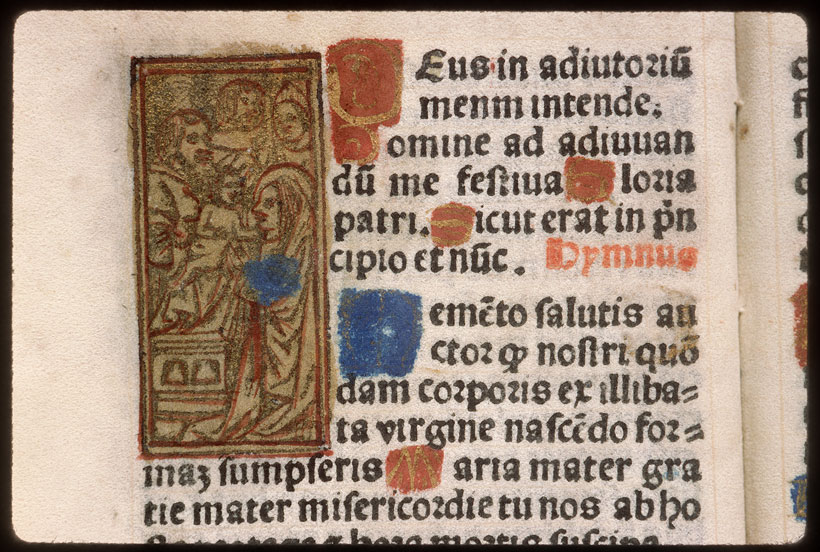 Eus in adiutoriū
menm intende:
Domine ad adiuuan
dū me festina Gloria
patri. Sicut erat in pn̄
cipio et nūc. Hymnus
Memēto salutis au
ctor ꝙ nostri quō
dam corporis ex illiba=
ta virgine nascēdo for=
maꝫ sumpseris Maria mater gra
tie mater misericordie tu nos ab ho
hora mortis suscipe